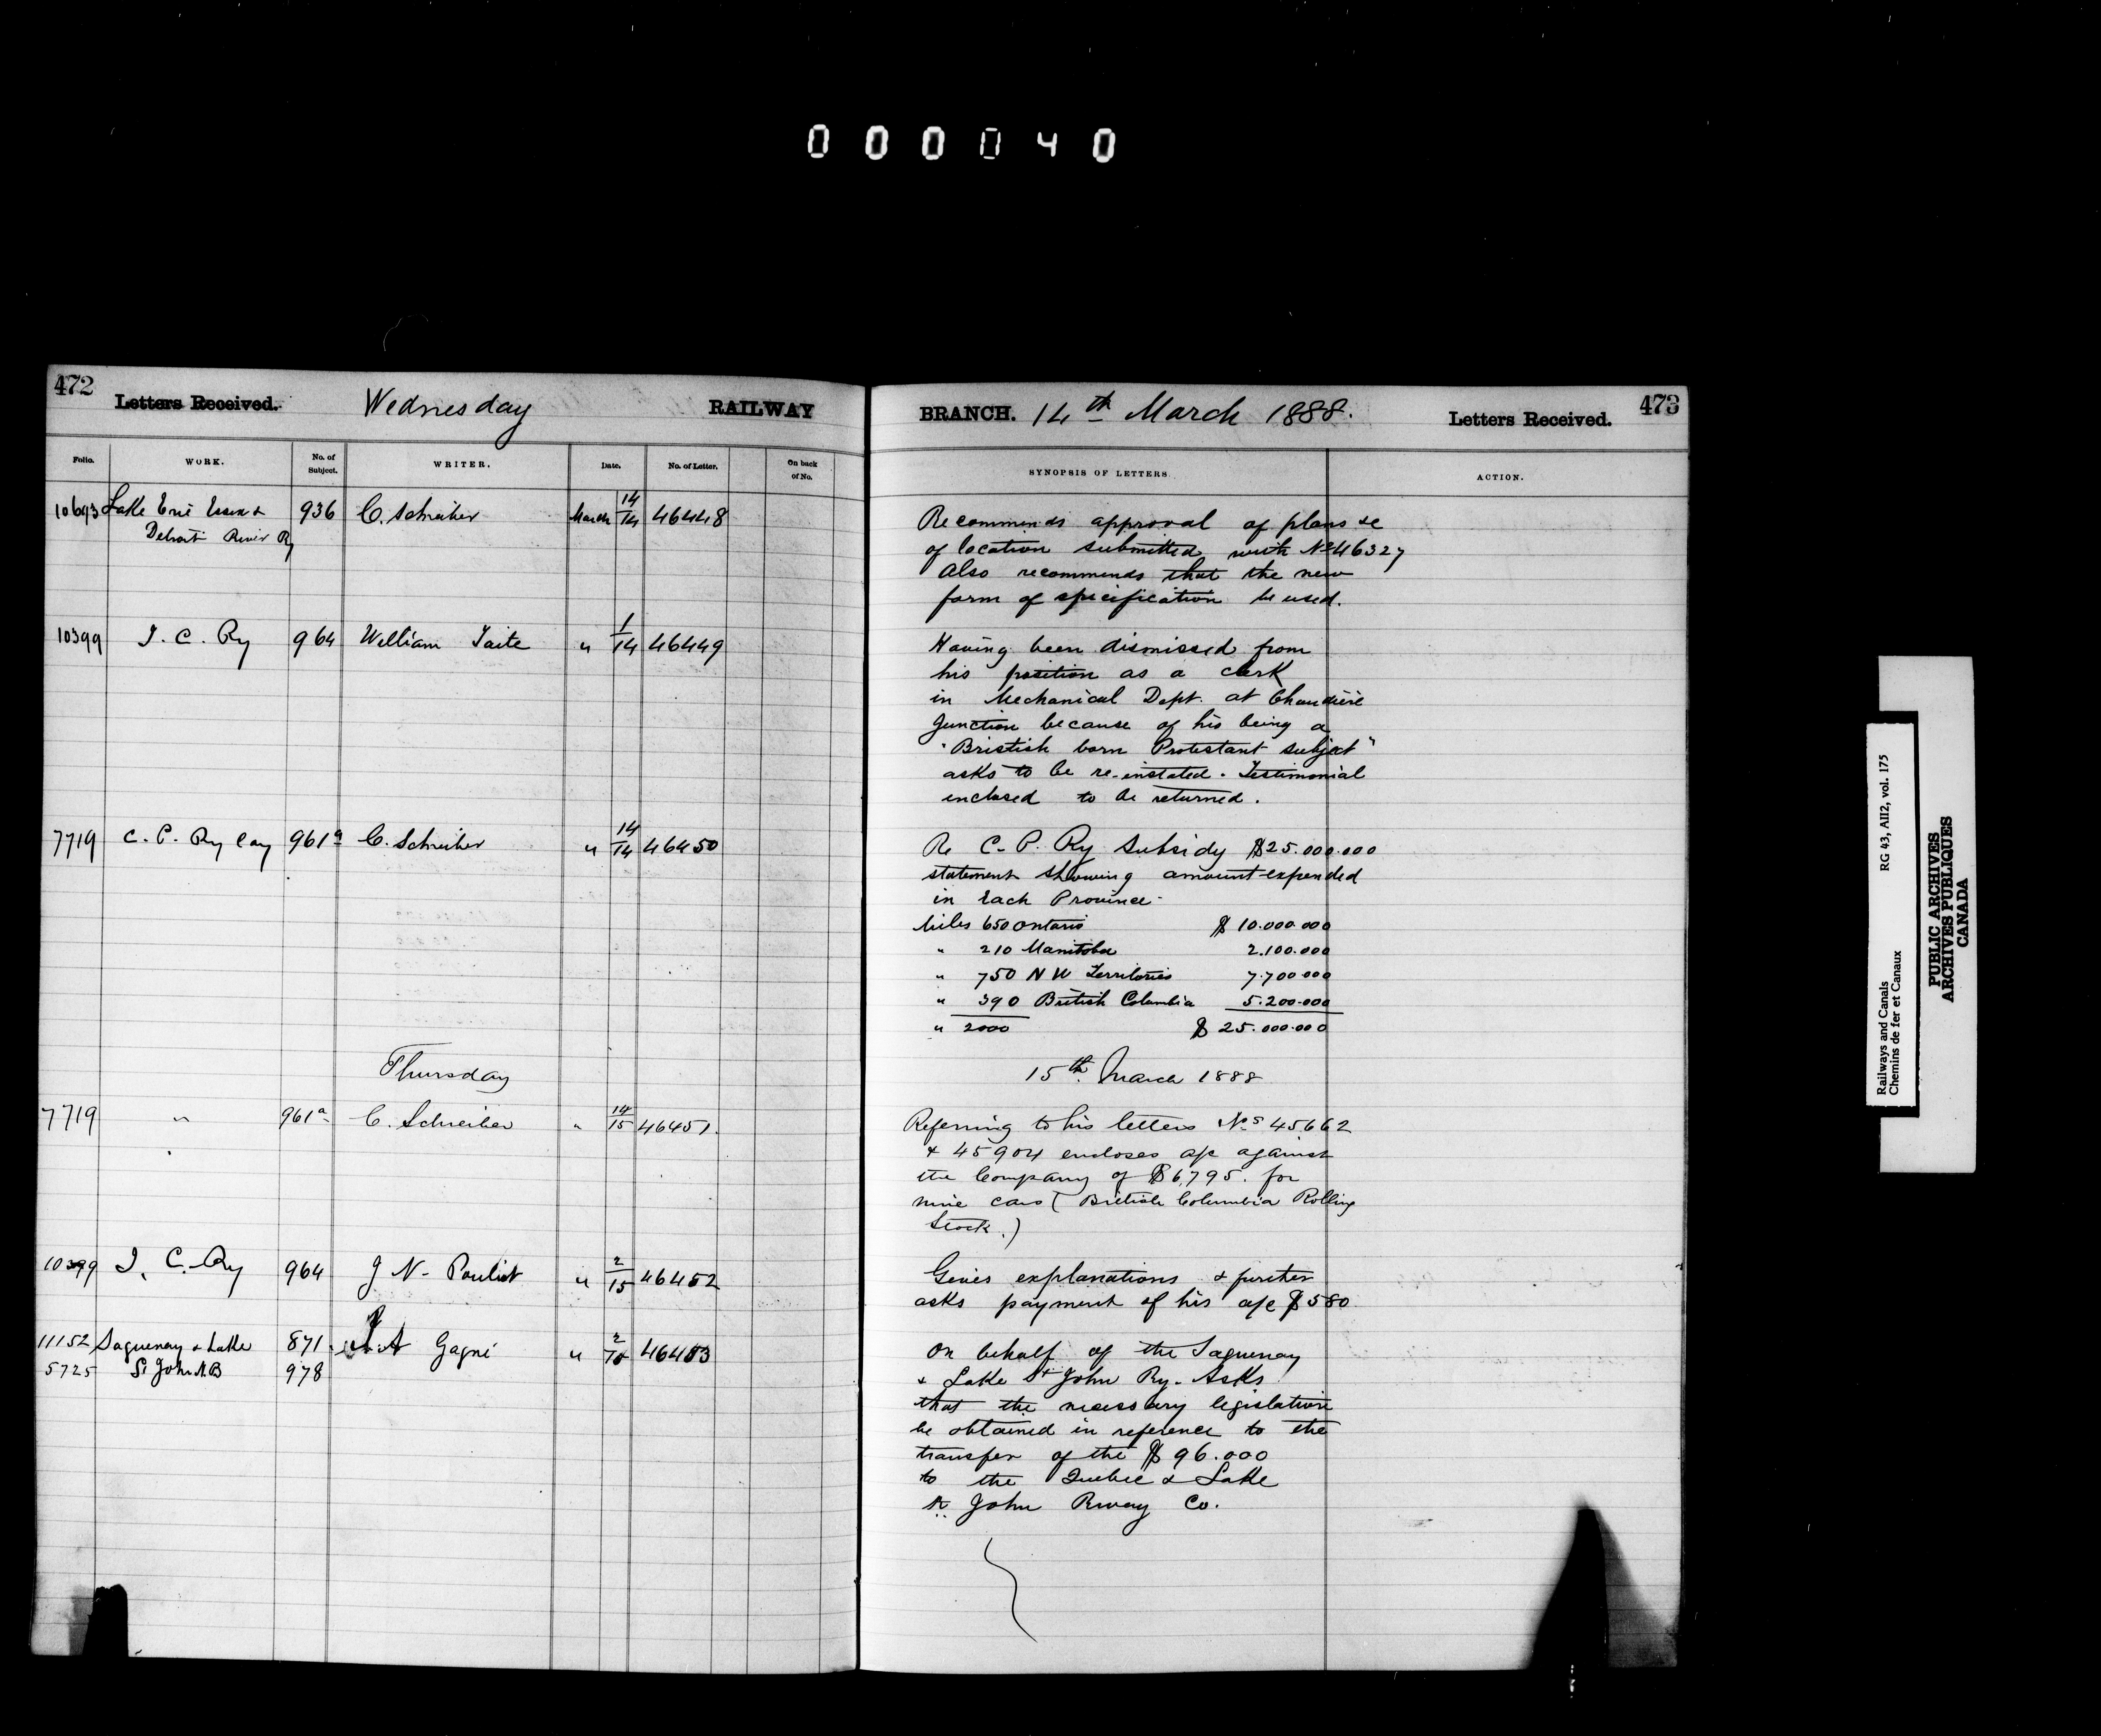 000040
472
Letters Received.
Wednesday
RAILWAY
Folio.
WORK.
No. of Subject.
WRITER.
Date.
No. of Letter.
On back of No.
10693 Lake Erie Essex & 936 C. Schreiber March 14/14 46448
Detroit River Ry
10399 I. C. Ry 964 William Taite " 1/14 46449
7719 C. P. Ry Coy 961a C. Schreiber " 14/14 46450
Thursday
7719 " 961a C. Schreiber " 14/15 46451.
10399 I. C. Ry 964 J N. Pouliot " 2/15 46452
11152 Saguenay & Lake 871 A Gagné " 2/15 46453
5725 St John 978
BRANCH.
14th March 1888.
Letters Received.
473
SYNOPSIS OF LETTERS.
ACTION.
Recommends approval of plans &c
of location submitted with No 46327
Also recommends that the new
form of specification be used.
Having been dismissed from
his position as a clerk
in Mechanical Dept. at Chaudière
Junction because of his being a
"Bristish born Protestant subject"
asks to be re-instated. Testimonial
enclosed to be returned.
Re C. P. Ry Subsidy $25.000.000
statement showing amount expended
in each Province-
Miles 650 Ontario $ 10.000.000
" 210 Manitoba 2.100.000
" 750 N W Territories 7.700.000
" 390 British Columbia 5.200.000
" 2000 $ 25.000.000
15th March 1888
Referring to his letters Nos 45662
& 45904 encloses a/c against
the Company of $6,795. for
nine cars (British Columbia Rolling
Stock.)
Gives explanations & further
asks payment of his a/c $580
On behalf of the Saguenay
& Lake St John Ry. Asks
that the necessary legislation
be obtained in reference to the
transfer of the $96.000
to the Quebec & Lake
St. John Rway Co.
Railways and Canals
Chemins de fer et Canaux
RG 43, AII2, vol. 175
PUBLIC ARCHIVES
ARCHIVES PUBLIQUES
CANADA